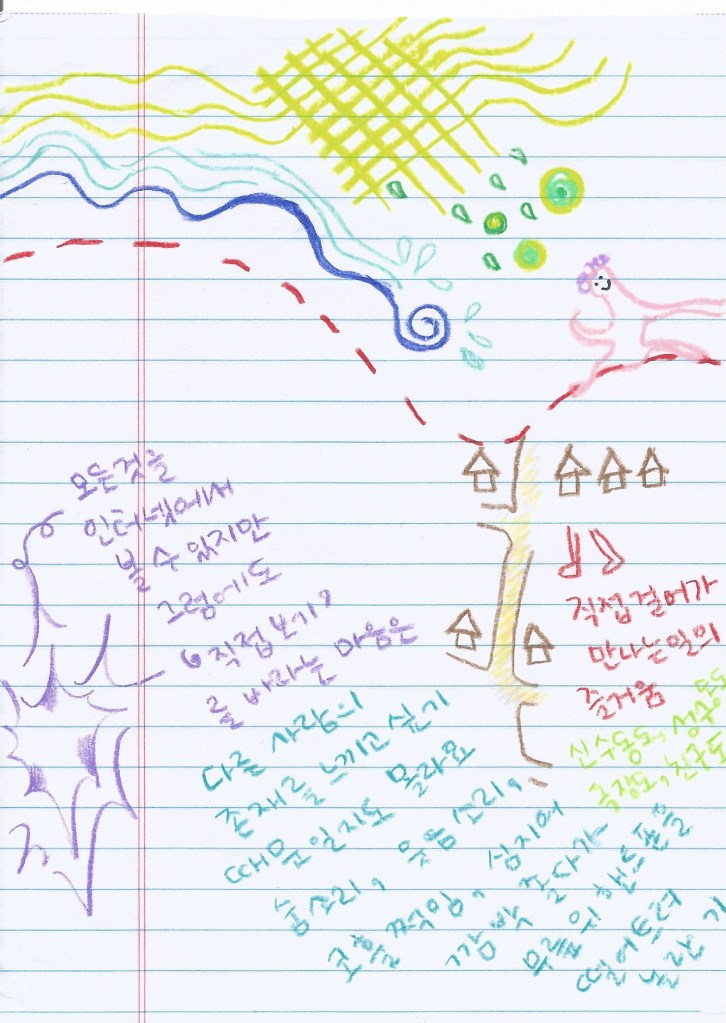 모든것을
인터넷에서
볼 수 있지만
그럼에도
직접 보기,
를 바라는 마음은
다른 사람의
존재를 느끼고 싶기
때문일지도 몰라요
숨소리, 웃음소리,
훌쩍임, 심지어
깜빡 졸다가
무릎위 핸드폰을
떨어트려
놀라기
직접 걸어가
만나는일의
즐거움
신수동도, 성수동도
극장도, 친구도